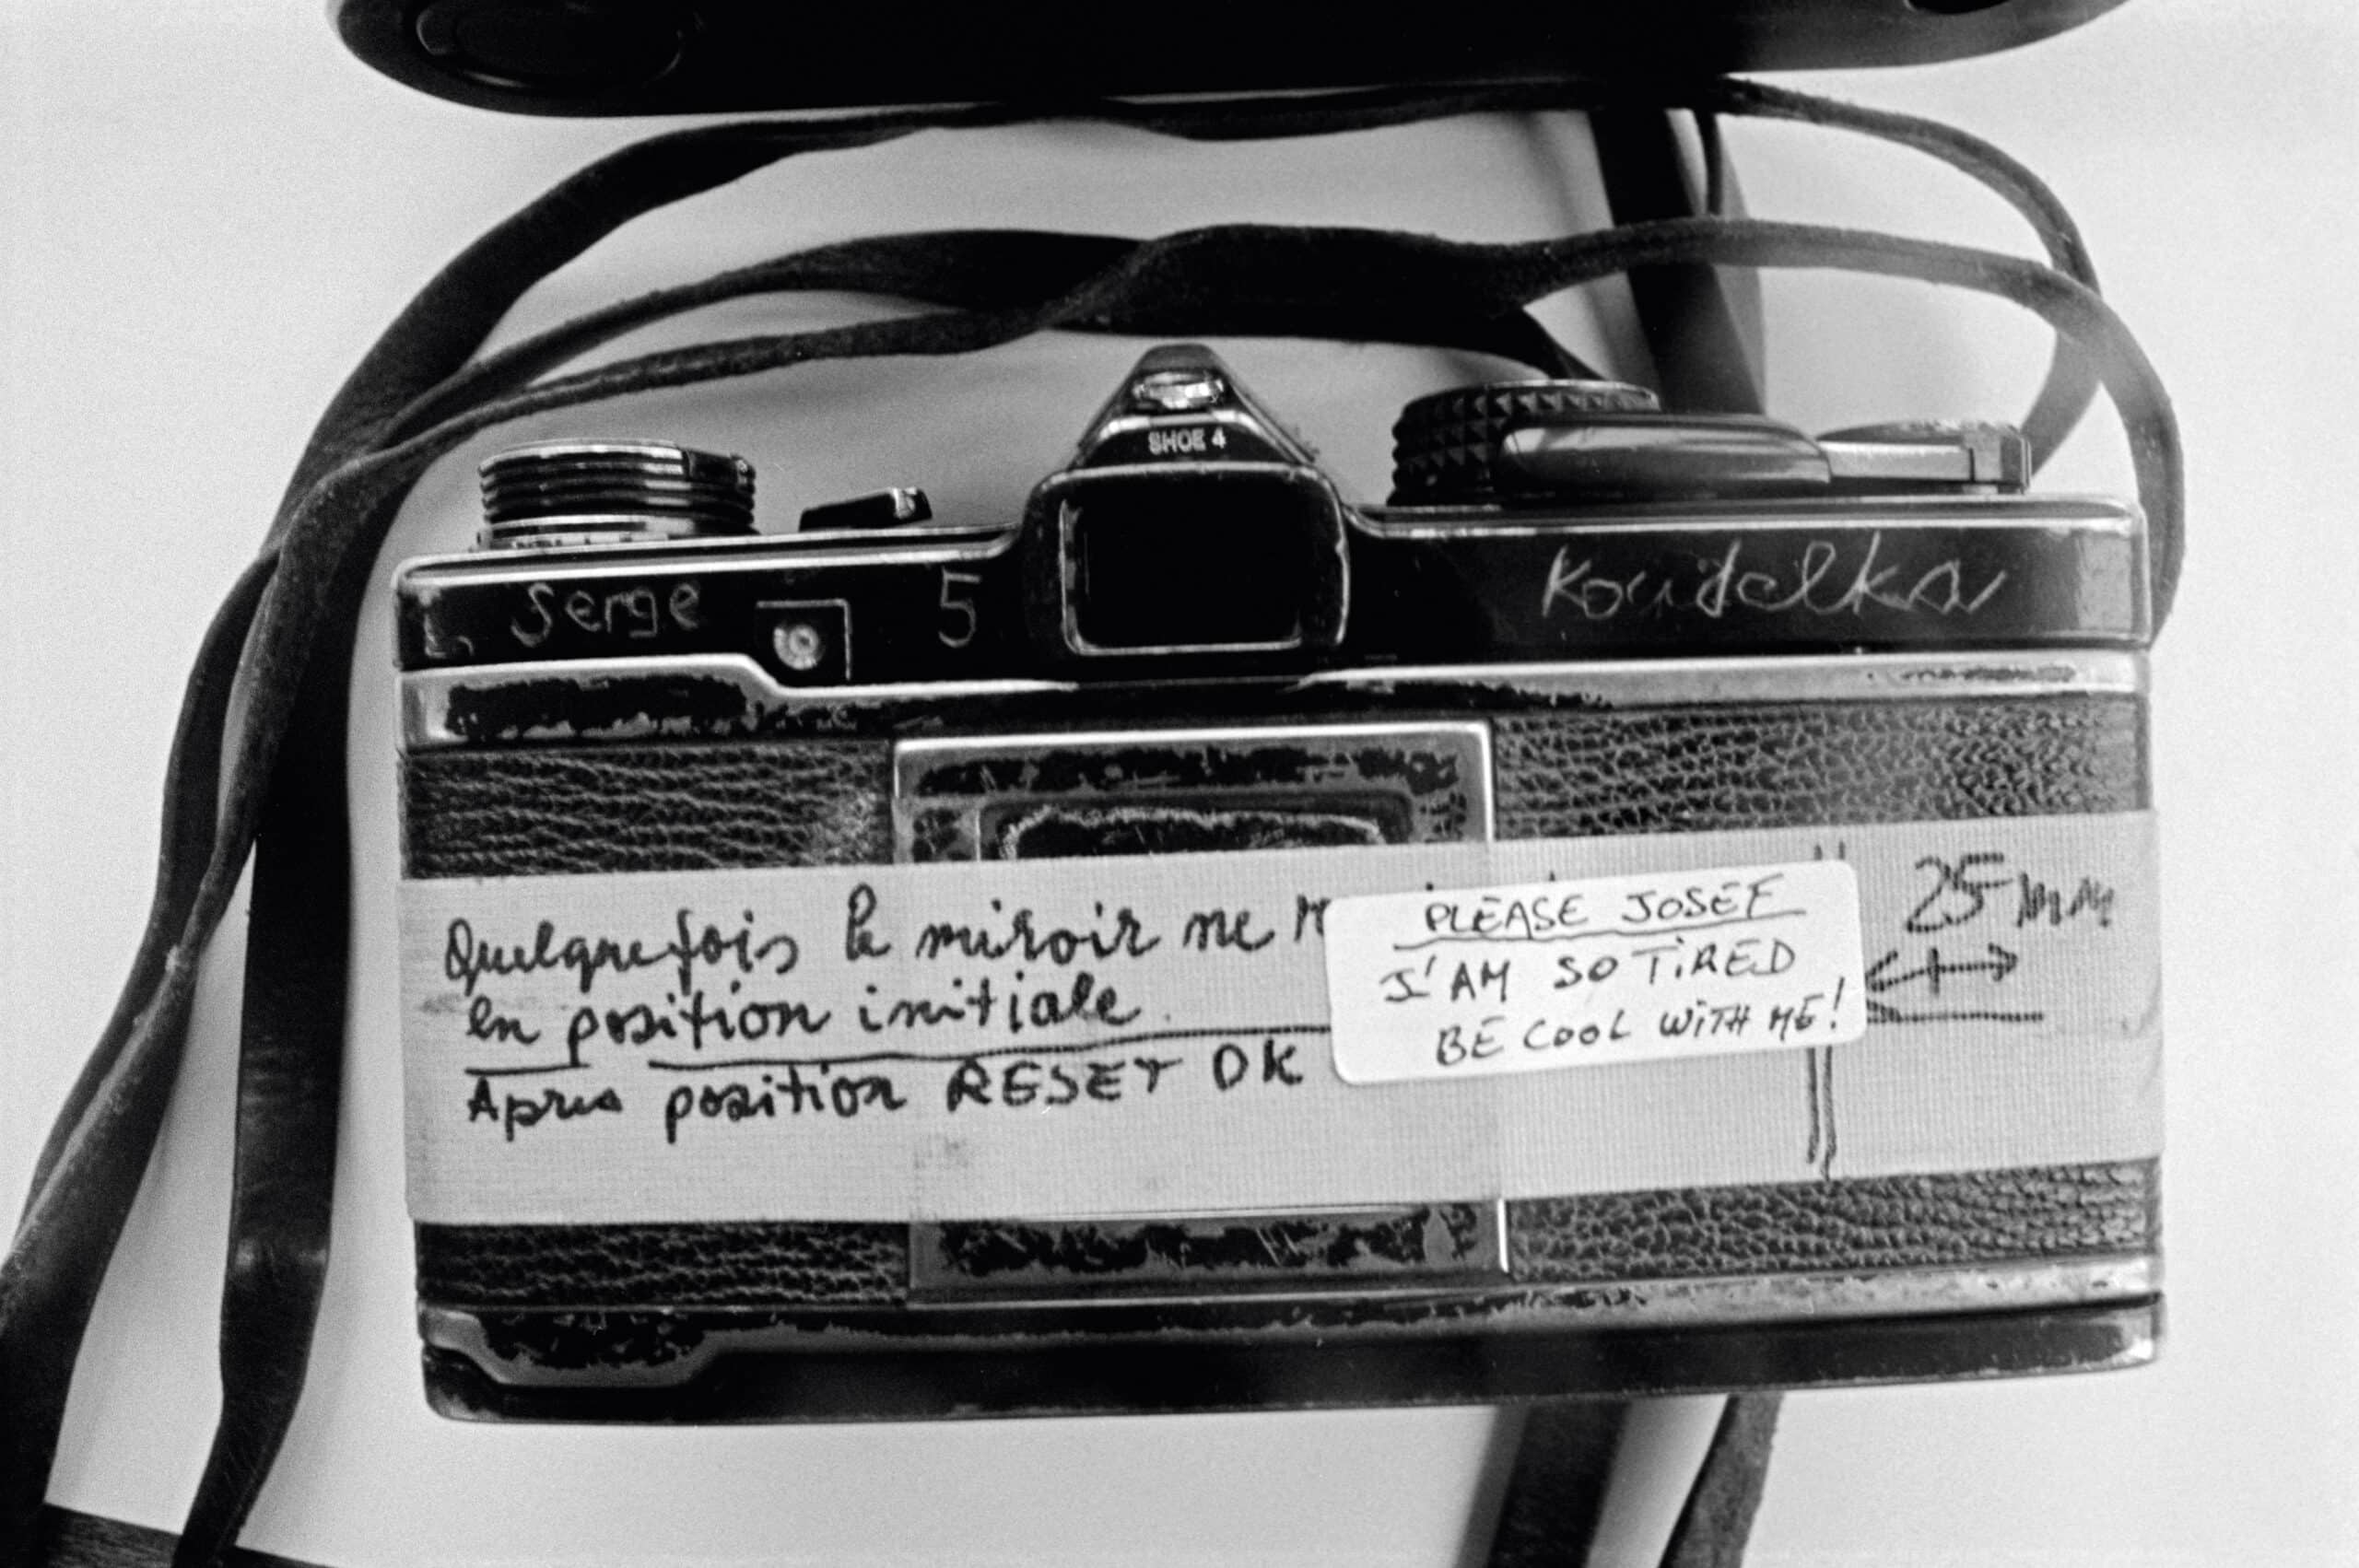 SHOE 4
Serge 5 Koudelka
25mm
Quelquefois le miroir ne
en position initiale.
Après position RESET OK
PLEASE JOSEF
I'AM SO TiRED
BE COOL WiTH ME!